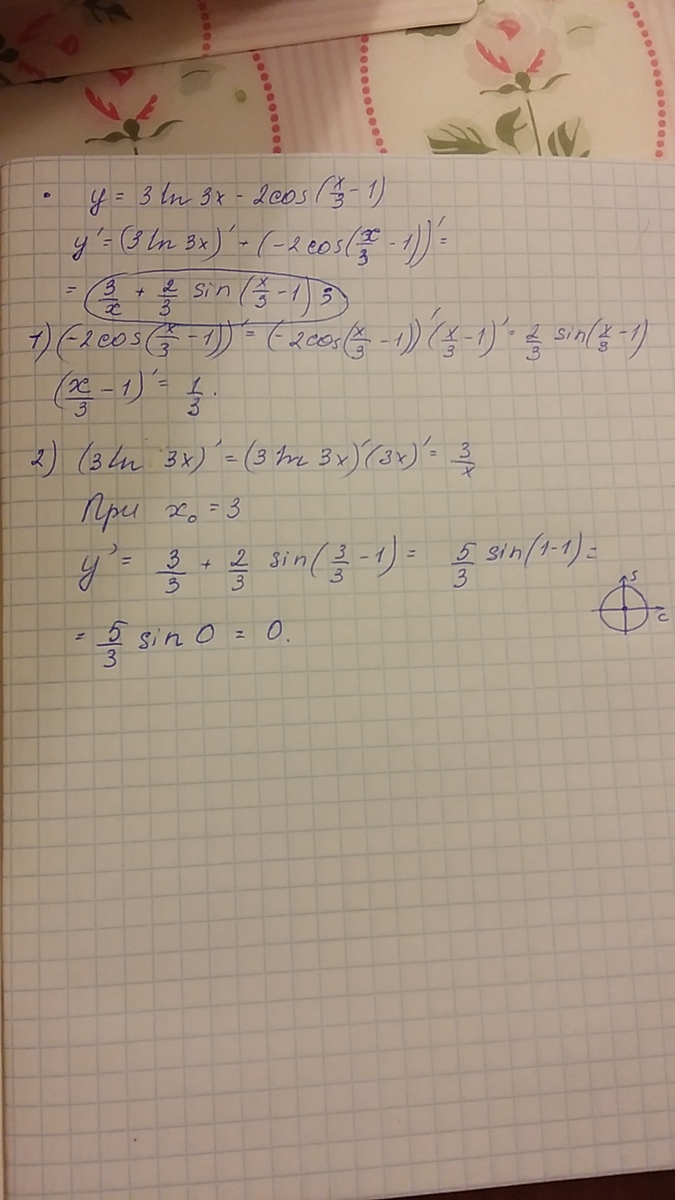 • y = 3 ln 3x - 2cos(x/3 - 1)
y' = (3 ln 3x)' + (-2cos(x/3 - 1))' =
= (3/x + 2/3 sin(x/3 - 1)
1) (-2cos(x/3 - 1))' = (-2cos(x/3 - 1))'(x/3 - 1)' = 2/3 sin(x/3 - 1)
(x/3 - 1)' = 1/3.
2) (3 ln 3x)' = (3 ln 3x)'(3x)' = 3/x
При x₀ = 3
y' = 3/3 + 2/3 sin(3/3 - 1) = 5/3 sin(1-1) =
= 5/3 sin 0 = 0.
s
c